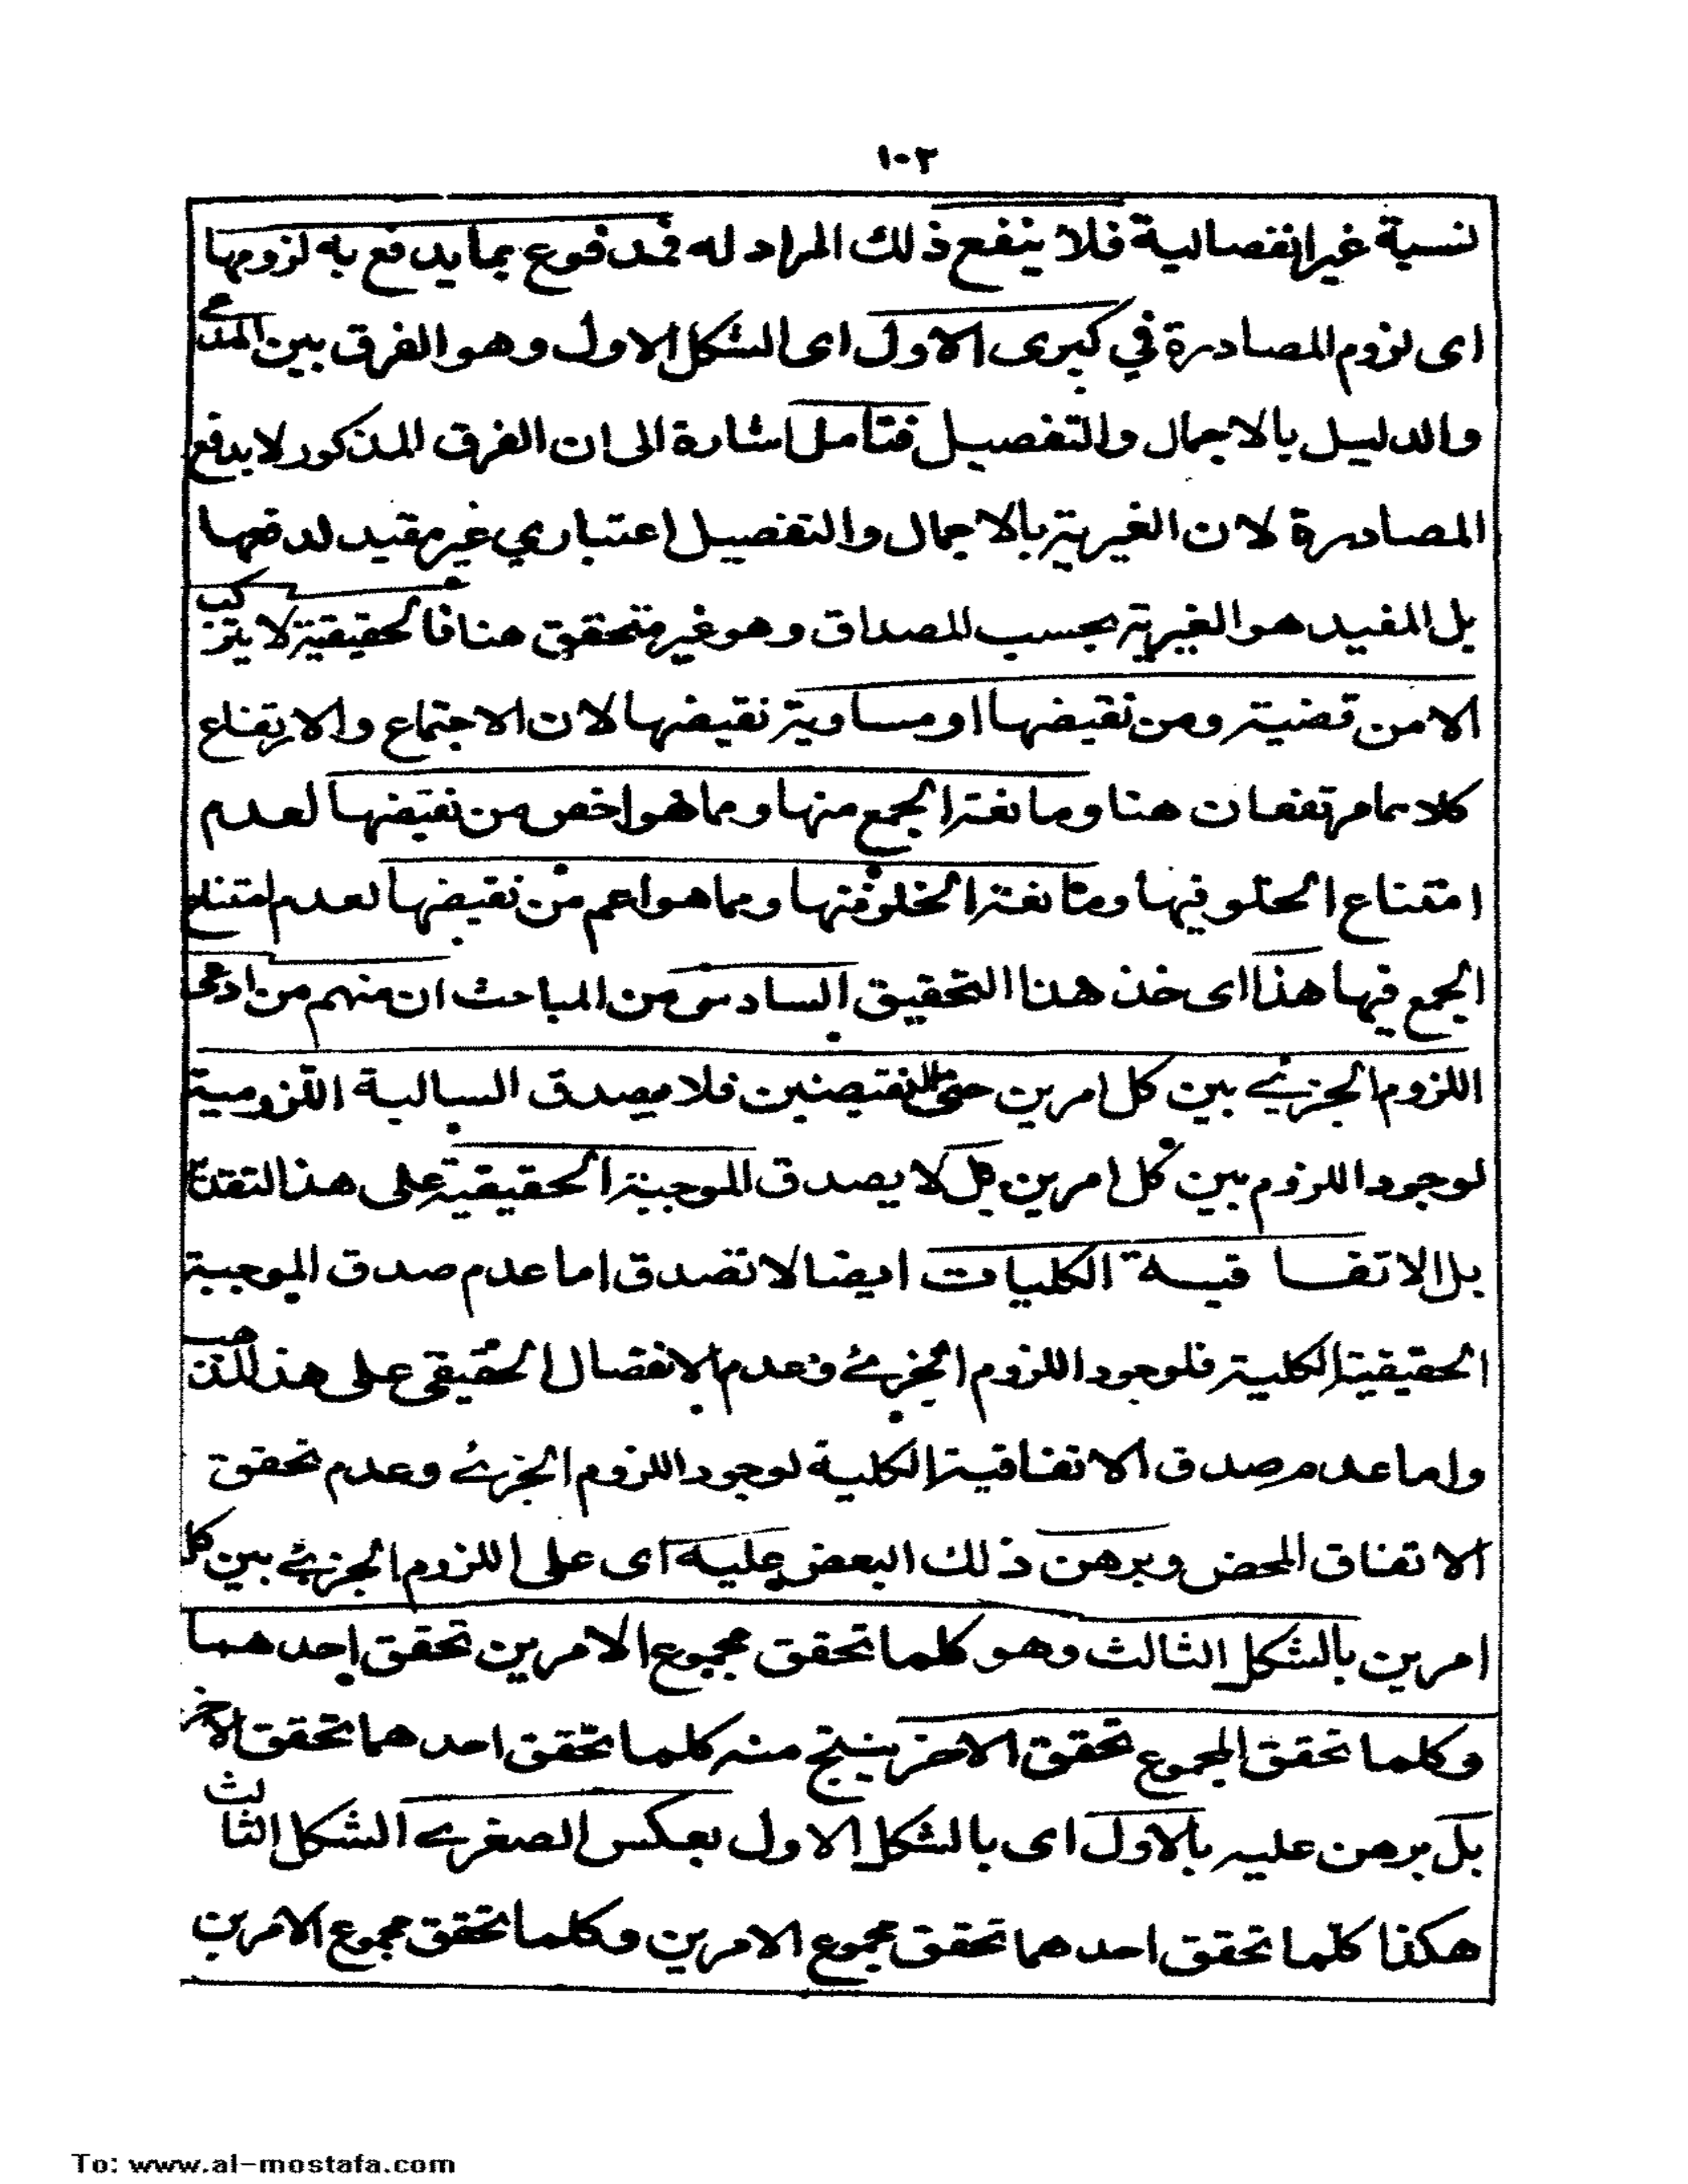 ١٠٣
نسبة غير انفصالية فلا ينفع ذلك المراد له فمدفوع بما يدفع به لزومها
اى لزوم المصادرة في كبرى الاول اى الشكل الاول وهو الفرق بين المدعى
والدليل بالاجمال والتفصيل فتأمل اشارة الى ان الفرق المذكور لا يدفع
المصادرة لان الغيرية بالاجمال والتفصيل اعتباري غير مقيد لدفعها
بل المفيد هو الغيرية بحسب المصداق وهو غير متحقق هنا فالحقيقية لا يتركب
الا من قضية ومن نقيضها او مساوية نقيضها لان الاجتماع والارتفاع
كلاهما مرتفعان هنا ومانعة الجمع منها ومما هو اخص من نقيضها لعدم
امتناع الخلو فيها ومانعة الخلو منها ومما هو اعم من نقيضها لعدم امتناع
الجمع فيها هذا اى خذ هذا التحقيق السادس من المباحث ان منهم من ادعى
اللزوم الجزئي بين كل امرين حتى النقيضين فلا يصدق السالبة اللزومية
لوجود اللزوم بين كل امرين بل لا يصدق الموجبة الحقيقية على هذا التقدير
بل الاتفا قية الكليات ايضا لا تصدق اما عدم صدق الموجبة
الحقيقية الكلية فلوجود اللزوم الجزئي وعدم الانفصال الحقيقي على هذا المذهب
واما عدم صدق الاتفاقية الكلية لوجود اللزوم الجزئي وعدم تحقق
الاتفاق المحض وبرهن ذلك البعض عليه اى على اللزوم الجزئي بين كل
امرين بالشكل الثالث وهو كلما تحقق مجموع الامرين تحقق احدهما
وكلما تحقق المجموع تحقق الاخر ينتج منه كلما تحقق احدهما تحقق الاخر
بل برهن عليه بالاول اى بالشكل الاول بعكس الصغرى الشكل الثالث
هكذا كلما تحقق احدهما تحقق مجموع الامرين وكلما تحقق مجموع الامرين
To: www.al-mostafa.com